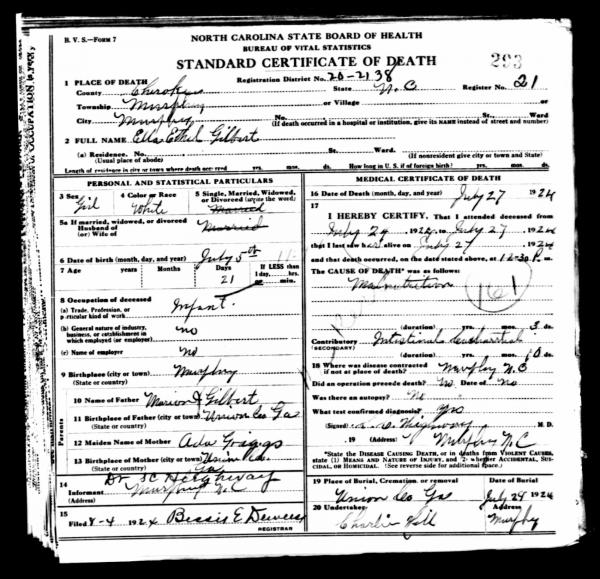 B. V. S.—Form 7
NORTH CAROLINA STATE BOARD OF HEALTH
BUREAU OF VITAL STATISTICS
STANDARD CERTIFICATE OF DEATH
293
1 PLACE OF DEATH Registration District No. 20-2138
County Cherokee State N.C Register No. 21
Township Murphy or Village or
City Murphy No. St. Ward
(If death occurred in a hospital or institution, give its NAME instead of street and number)
2 FULL NAME Ella Ethel Gilbert
(a) Residence. No. St. Ward
(Usual place of abode) (If nonresident give city or town and State)
Length of residence in city or town where death occurred yrs. mos. ds. How long in U. S. if of foreign birth? yrs. mos. ds.
PERSONAL AND STATISTICAL PARTICULARS
3 Sex Girl
4 Color or Race White
5 Single, Married, Widowed, or Divorced (write the word) Married
5a If married, widowed, or divorced
Husband of
(or) Wife of Married
6 Date of birth (month, day, and year) July 5th
7 Age Years Months Days 21 If LESS than 1 day, hrs. or min.
8 Occupation of deceased
(a) Trade, Profession, or particular kind of work Infant.
(b) General nature of industry, business, or establishment in which employed (or employer) no
(c) Name of employer No
9 Birthplace (city or town) Murphy
(State or country)
Parents
10 Name of Father Marion Gilbert
11 Birthplace of Father (city or town) Union Co Ga
(State or country)
12 Maiden Name of Mother Ada
13 Birthplace of Mother (city or town) Union Co.
(State or country) Ga
14 Informant Dr SC Heighway
Murphy N.C
15 Filed 8-4 1924 Bessie E
REGISTRAR
MEDICAL CERTIFICATE OF DEATH
16 Date of Death (month, day, and year) July 27 1924
17
I HEREBY CERTIFY, That I attended deceased from
July 24 1924, to July 27 1924
that I last saw her alive on July 27 1924
and that death occurred, on the date stated above, at 12-30 P. m.
The CAUSE OF DEATH* was as follows:
Malnutrition
161
(duration) yrs. mos. 3 ds.
Contributory Intestinal
(SECONDARY)
(duration) yrs. mos. 10 ds.
18 Where was disease contracted
if not at place of death? Murphy N.C
Did an operation precede death? No Date of No
Was there an autopsy? No
What test confirmed diagnosis? Yes
(Signed) Heighway M. D.
, 19 (Address) Murphy N.C
*State the DISEASE CAUSING DEATH, or in deaths from VIOLENT CAUSES, state (1) MEANS AND NATURE OF INJURY, and (2) whether ACCIDENTAL, SUICIDAL, or HOMICIDAL. (See reverse side for additional space.)
19 Place of Burial, Cremation, or removal Date of Burial
Union Co Ga July 28 1924
20 Undertaker Address
Charlie Hill Murphy